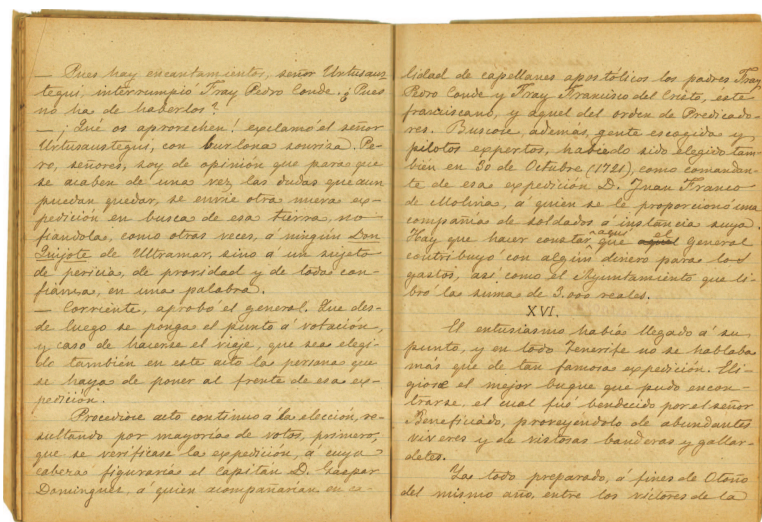 — Pues hay encantamientos, señor Urtusaus
tegui, interrumpió Fray Pedro Conde. ¿Pues
no ha de haberlos?
— ¡Que os aprovechen! exclamó el señor
Urtusaustegui, con burlona sonrisa. Pe-
ro, señores, soy de opinión que para que
se acaben de una vez las dudas que aun
puedan quedar, se envíe otra nueva ex-
pedición en busca de esa tierra, no
fiándola, como otras veces, á ningún Don
Quijote de Ultramar, sino á un sujeto
de pericia, de probidad y de toda con-
fianza, en una palabra.
— Corriente, aprobó el general. Que des-
de luego se ponga el punto á votación,
y caso de hacerse el viaje, que sea elegi-
do también en este acto la persona que
se haya de poner al frente de esa ex-
pedición.
Procediose acto continuo á la elección, re-
sultando por mayoría de votos, primero,
que se verificase la expedición, á cuya
cabeza figuraría el capitán D. Gaspar
Dominguez, á quien acompañarían en ca-
lidad de capellanes apostólicos los padres Fray
Pedro Conde y Fray Francisco del Cristo, éste
franciscano, y aquel del orden de Predicado-
res. Buscose, además, gente escogida y
pilotos expertos, habiendo sido elegido tam-
bién en 30 de Octubre (1721), como comandan-
te de esa expedición D. Juan Franco
de Molina, á quien se le proporcionó una
compañía de soldados á instancia suya.
Hay que hacer constar, aqui que el general
contribuyó con algún dinero para los
gastos, así como el Ayuntamiento que li-
bró la suma de 3.000 reales.
XVI.
El entusiasmo había llegado á su
punto, y en todo Tenerife no se hablaba
más que de tan famosa expedición. Eli-
giose el mejor buque que pudo encon-
trarse, el cual fué bendecido por el señor
Beneficiado, proveyéndolo de abundantes
víveres y de vistosas banderas y gallar-
detes.
Ya todo preparado, á fines de Otoño
del mismo año, entre los vítores de la